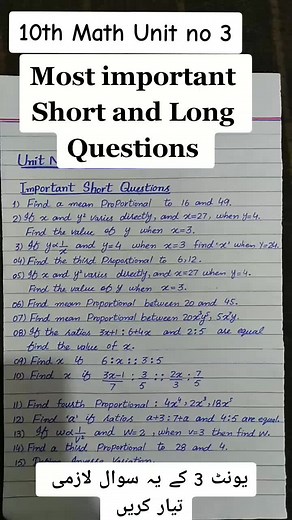 10th Math Unit no 3
Most important
Short and Long
Questions
Unit N
Important Short Questions
1) Find a mean Proportional to 16 and 49.
2) If x and y² varies directly, and x=27, when y=4.
Find the value of y when x=3.
3) If y∝1/x and y=4 when x=3 find 'x' when y=24.
04) Find the third Proportional to 6,12.
05) If x and y² varies directly, and x=27 when y=4.
Find the value of y when x=3.
06) Find mean Proportional between 20 and 45.
07) Find mean Proportional between 20x³y⁵, 5x⁷y.
08) If the ratios 3x+1 : 6+4x and 2:5 are equal
find the value of x.
09) Find x if 6:x :: 3:5
10) Find x if 3x-1/7 : 3/5 :: 2x/3 : 7/5
11) Find fourth Proportional : 4x⁴, 2x³, 18x⁵
12) Find 'a' if ratios a+3 : 7+a and 4:5 are equal.
13) If w∝1/v² and W=2, when v=3 then find w.
14) Find a third Proportional to 28 and 4.
15) Define Inverse Variation.
یونٹ 3 کے یہ سوال لازمی
تیار کریں